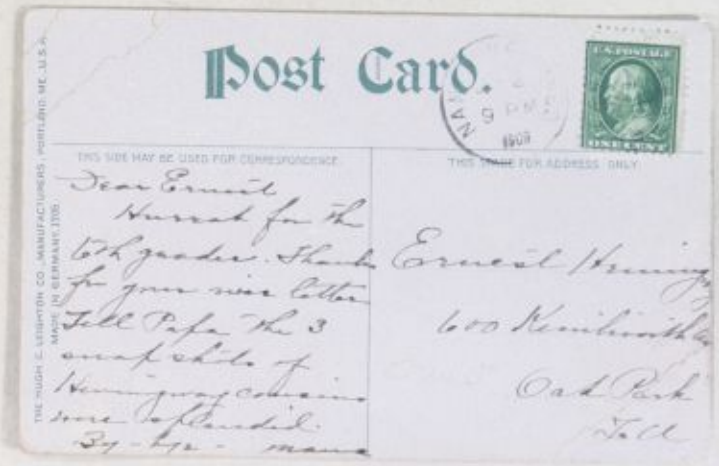 Post Card.
NAN
6 PM
1909
U.S. POSTAGE
ONE CENT
THE HUGH C. LEIGHTON CO., MANUFACTURERS, PORTLAND, ME., U.S.A.
MADE IN GERMANY
THIS SIDE MAY BE USED FOR CORRESPONDENCE.
THIS SPACE FOR ADDRESS ONLY.
Dear Ernest
Hurrah for the
6th grader. Thanks
for your nice letter
Tell Papa the 3
snap shots of
Hemingway cousins
were splendid.
By-bye - mama
Ernest Heming
600 Kenilworth Av
Oak Park
Ill